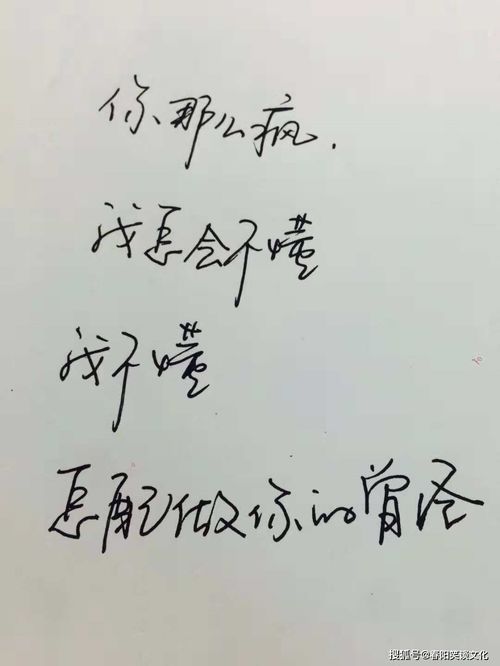 你那么疯.
我怎会不懂
我不懂
怎配做你的曾经
搜狐号@春阳笑谈文化